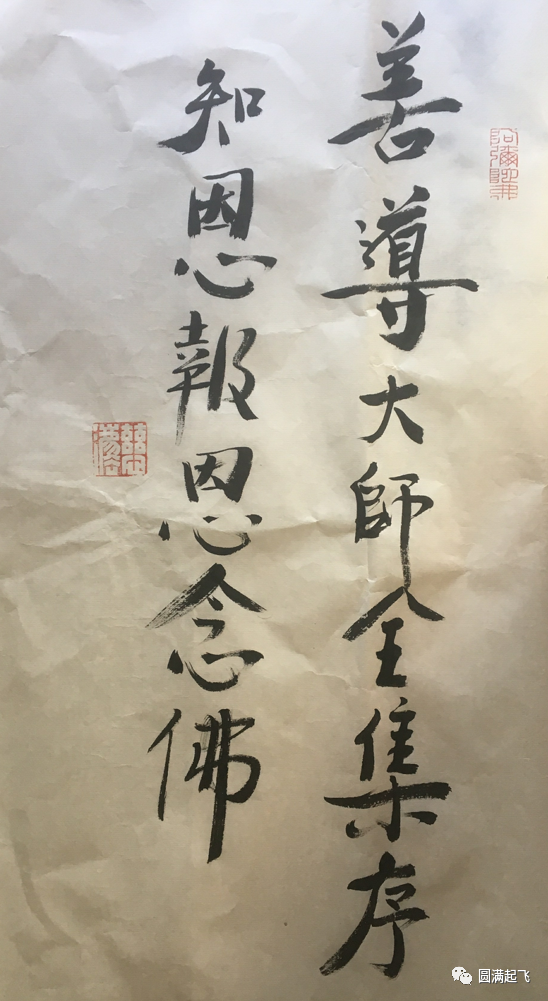 善導大師全集序
知恩報恩念佛
圆满起飞